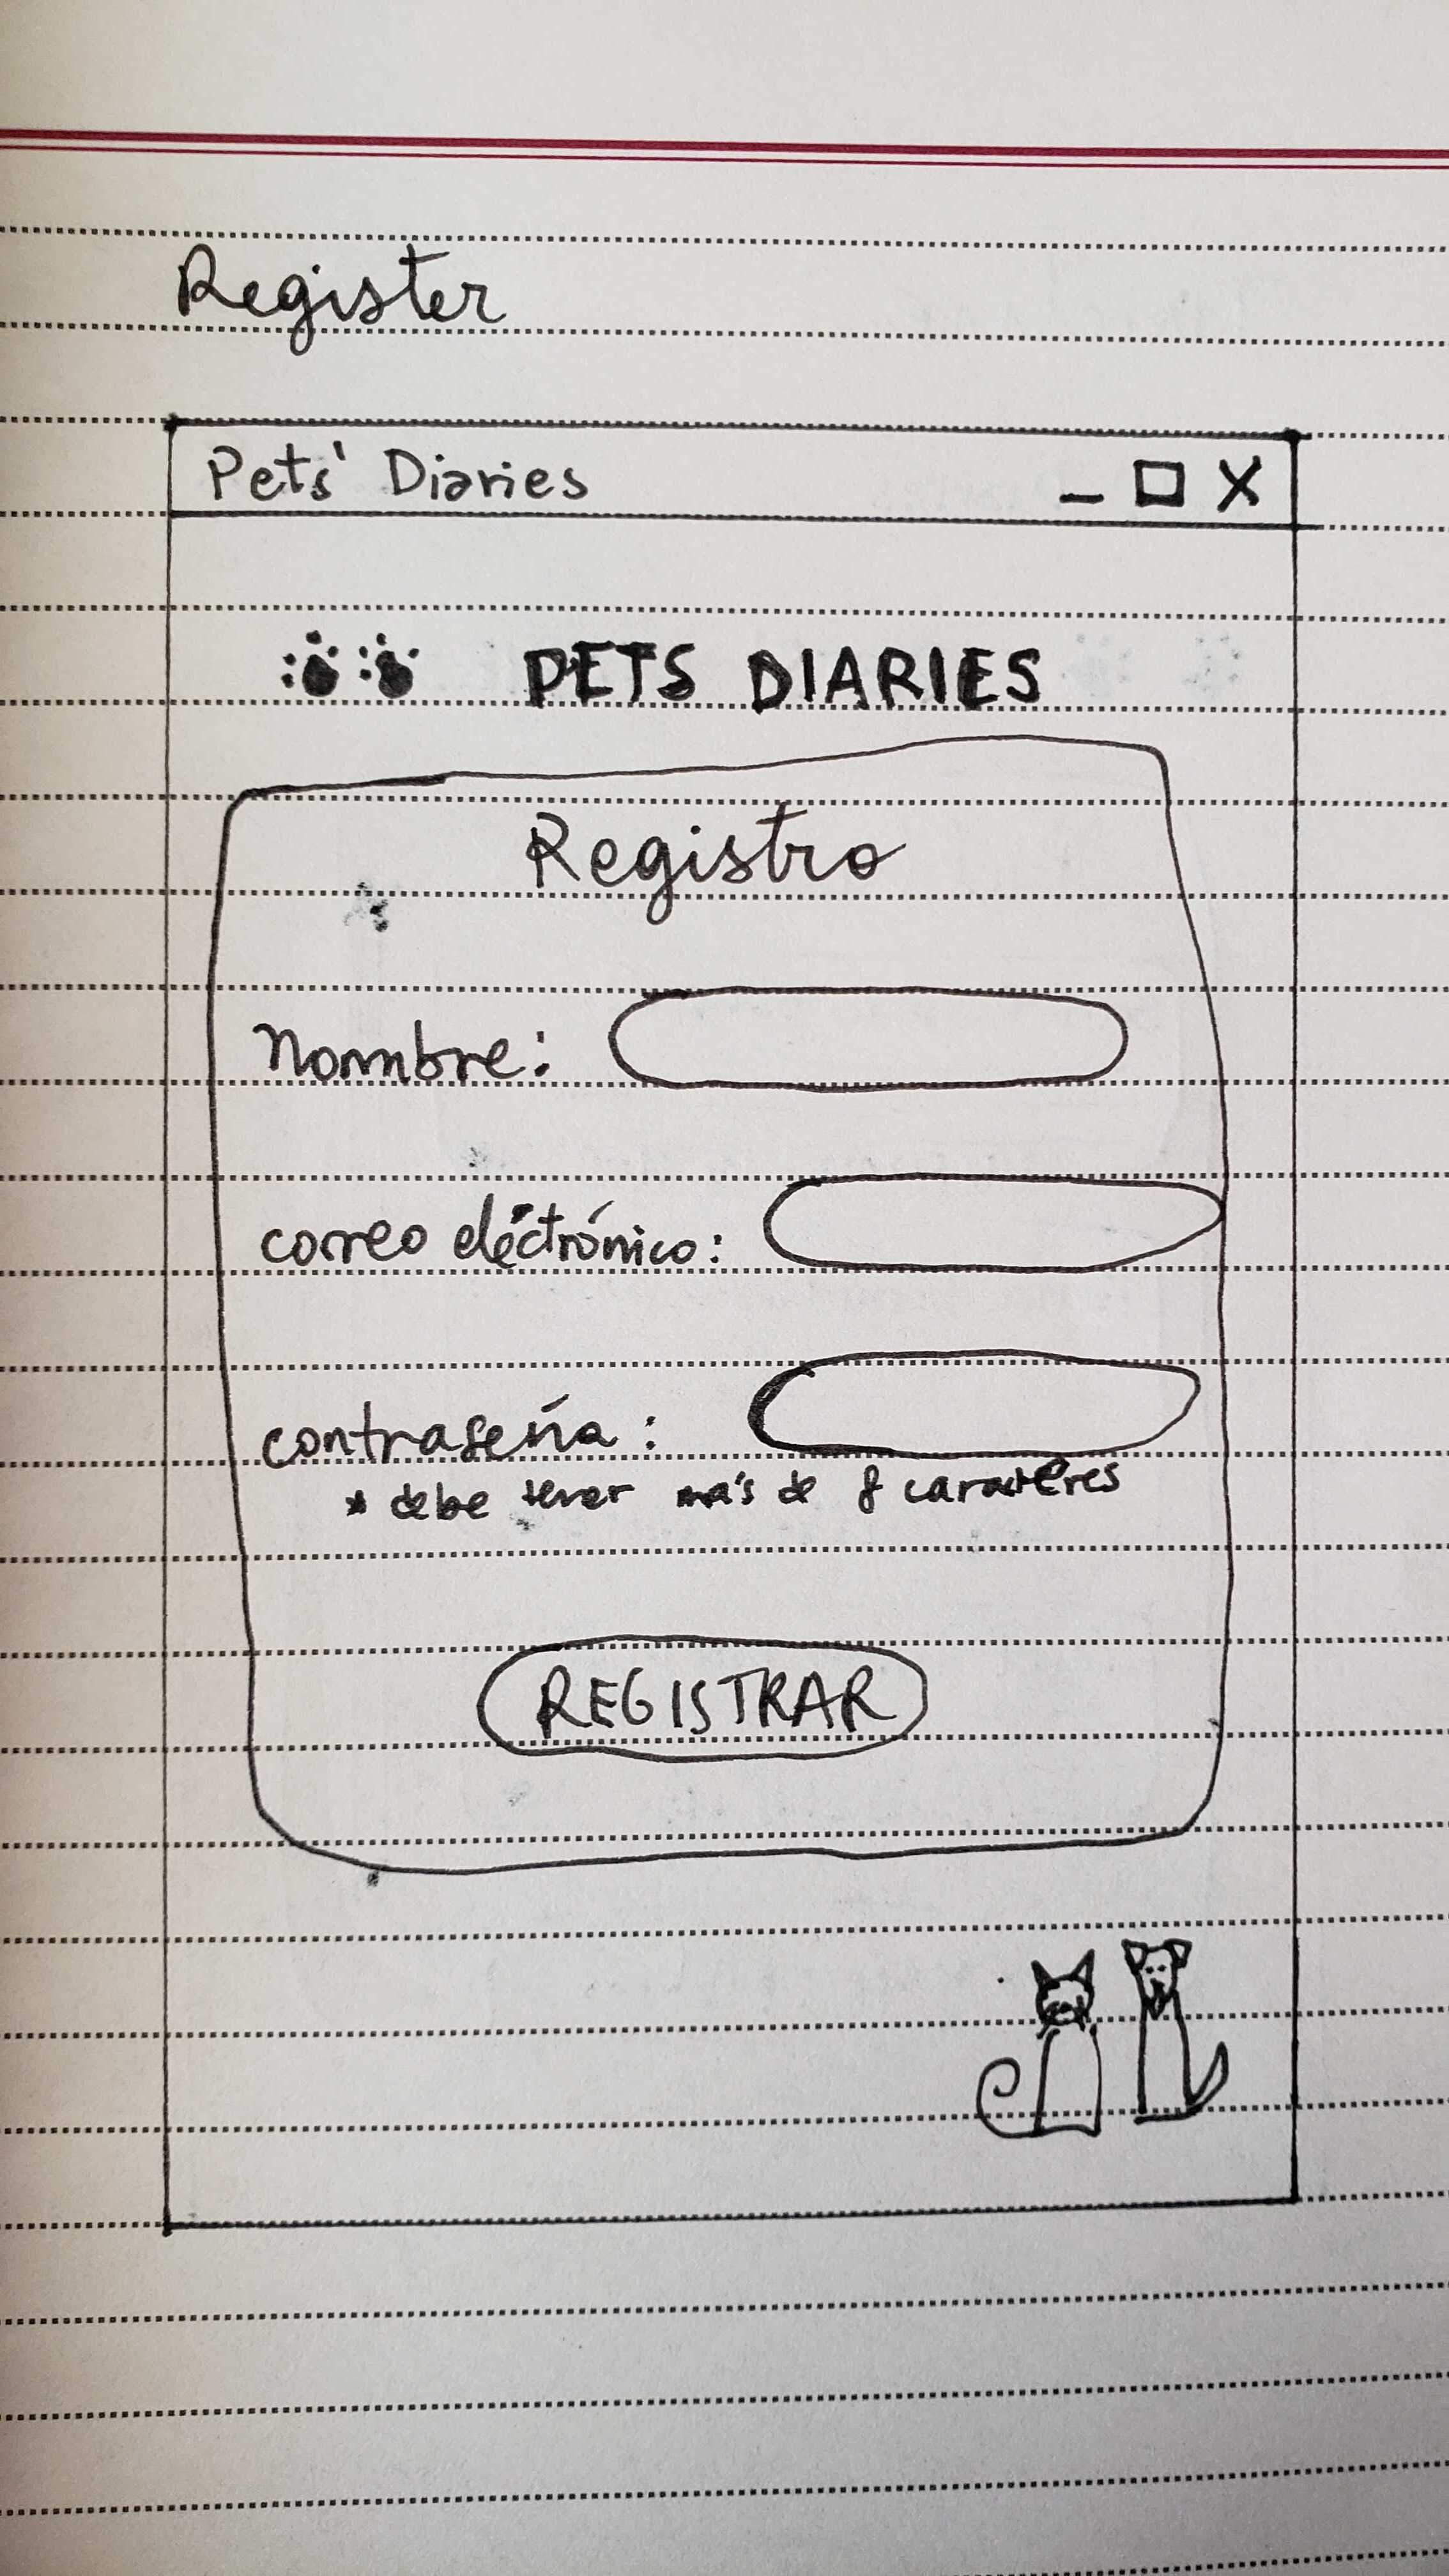 Register
Pets' Diaries
PETS DIARIES
Registro
Nombre:
correo eléctrónico:
contraseña:
* debe tener más de 8 caracteres
REGISTRAR